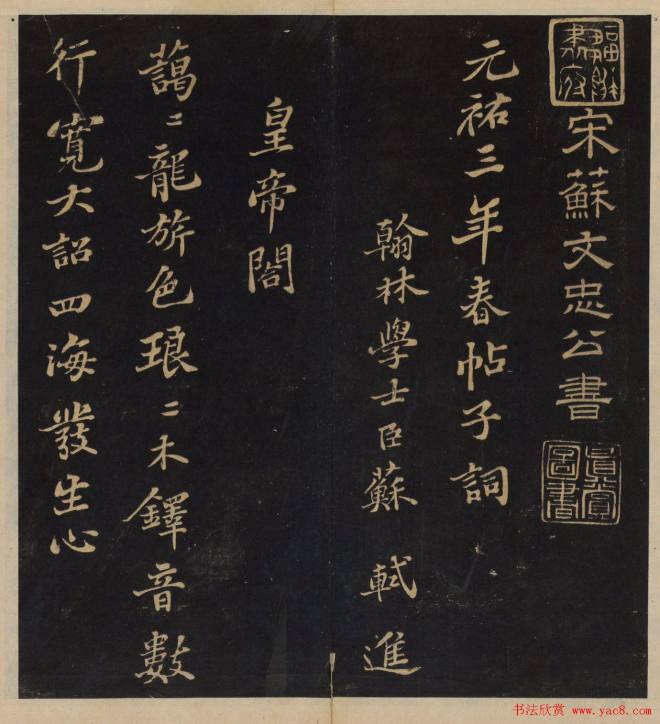 宋蘇文忠公書
元祐三年春帖子詞
翰林學士臣蘇軾進
皇帝閣
藹〻龍旂色琅〻木鐸音數
行寬大詔四海發生心
书法欣赏 www.yac8.com